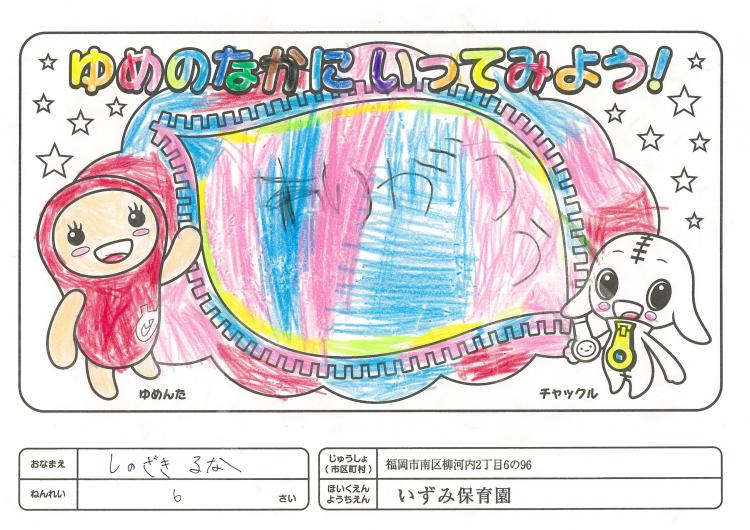 ゆめのなかに いってみよう!
ありがとう
ゆめんた
チャックル
おなまえ しのざき るな
ねんれい 6 さい
じゅうしょ
(市区町村) 福岡市南区柳河内2丁目6の96
ほいくえん
ようちえん いずみ保育園